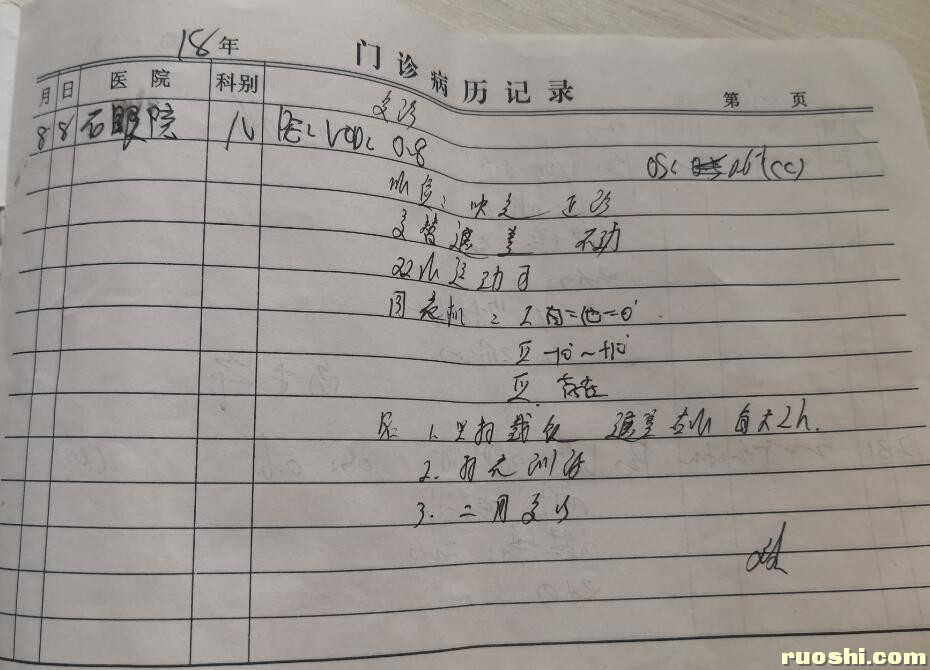 18年
门诊病历记录
第 页
月 日 医院 科别
复诊
8 8 石眼院 PE: VOD: 0.8
OS: 0.6 (CC)
眼位: 映光 正位
交替遮盖 不动
双眼运动可
同视机: I 自=他=0°
II -1° ~ +10°
III 存在
1. 坚持戴镜 遮盖右眼 每天2h.
2. 训练
3. 二月复诊
ruoshi.com